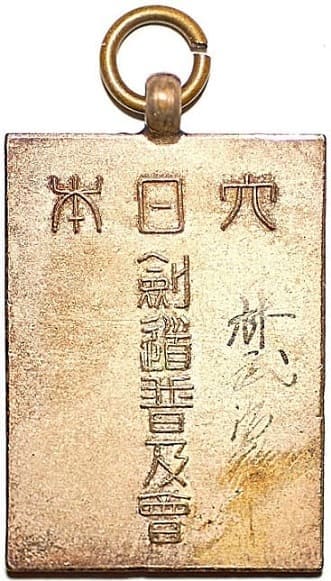 大日本
劍道普及會
林武